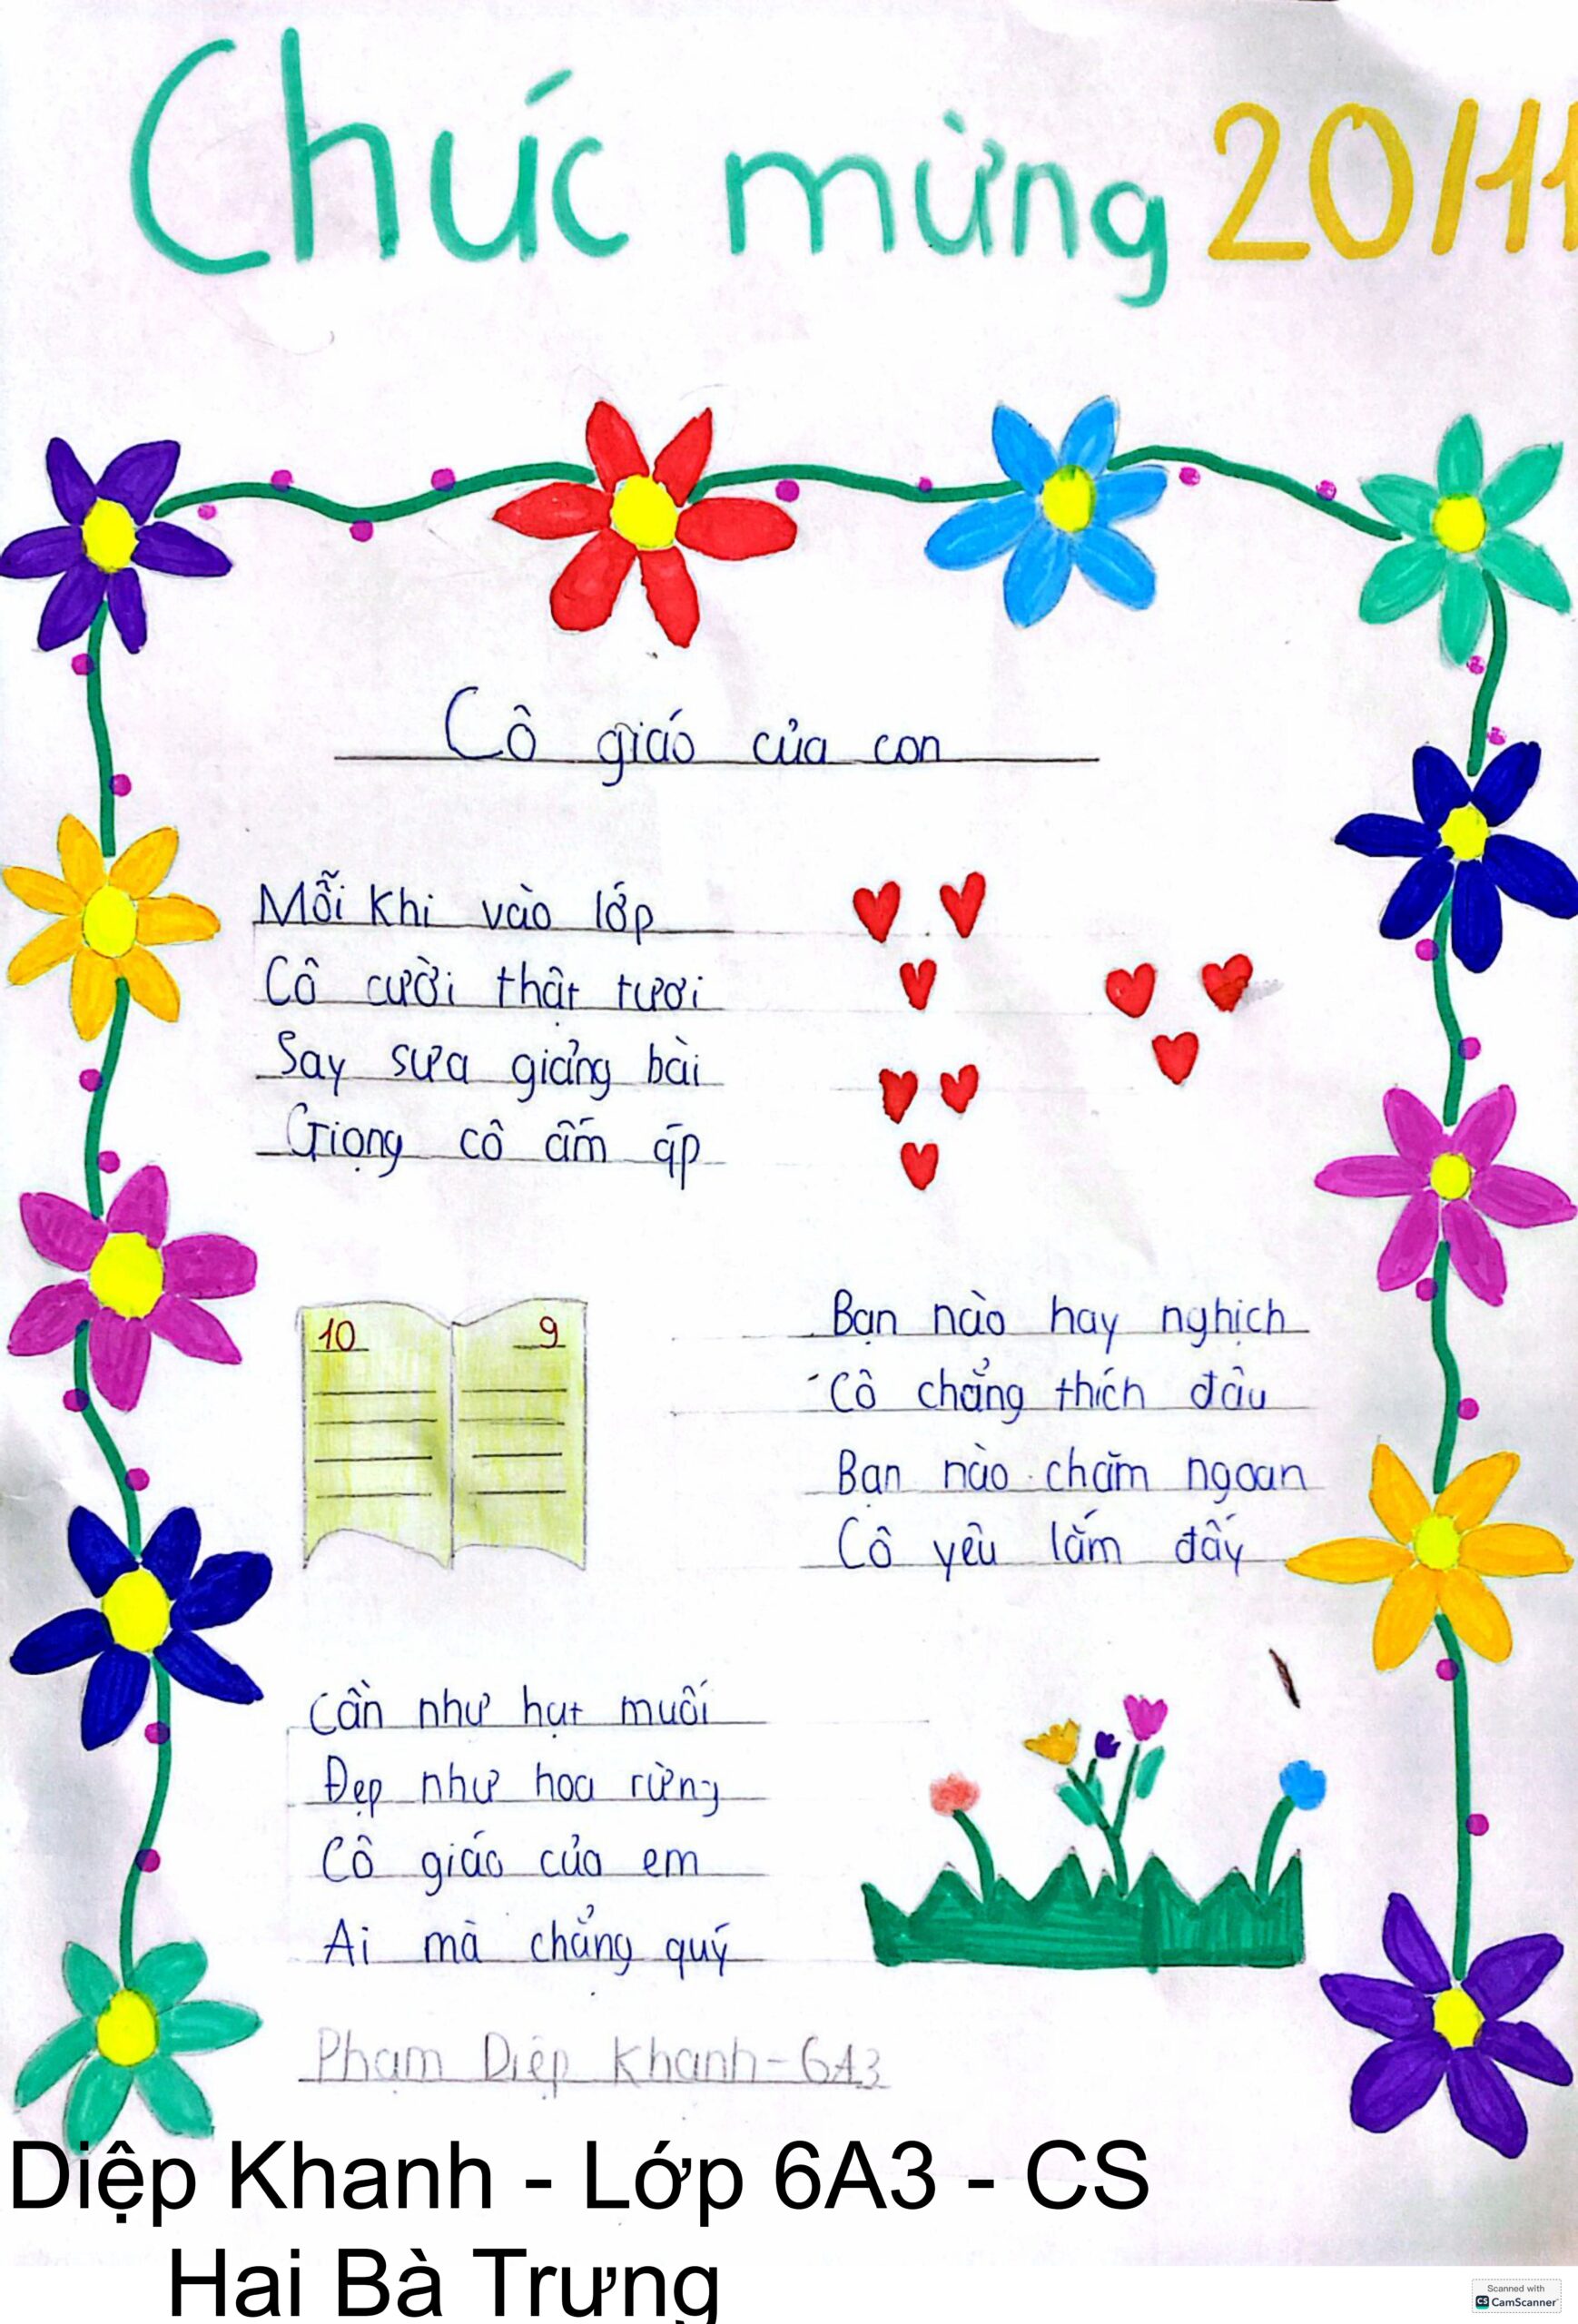 Chúc mừng 20/11
Cô giáo của con
Mỗi khi vào lớp
Cô cười thật tươi
Say sưa giảng bài
Giọng cô ấm áp
10 9
Bạn nào hay nghịch
Cô chẳng thích đâu
Bạn nào chăm ngoan
Cô yêu lắm đấy
Cần như hạt muối
Đẹp như hoa rừng
Cô giáo của em
Ai mà chẳng quý
Phạm Diệp Khanh - 6A3
Diệp Khanh - Lớp 6A3 - CS
Hai Bà Trưng
Scanned with
CS CamScanner